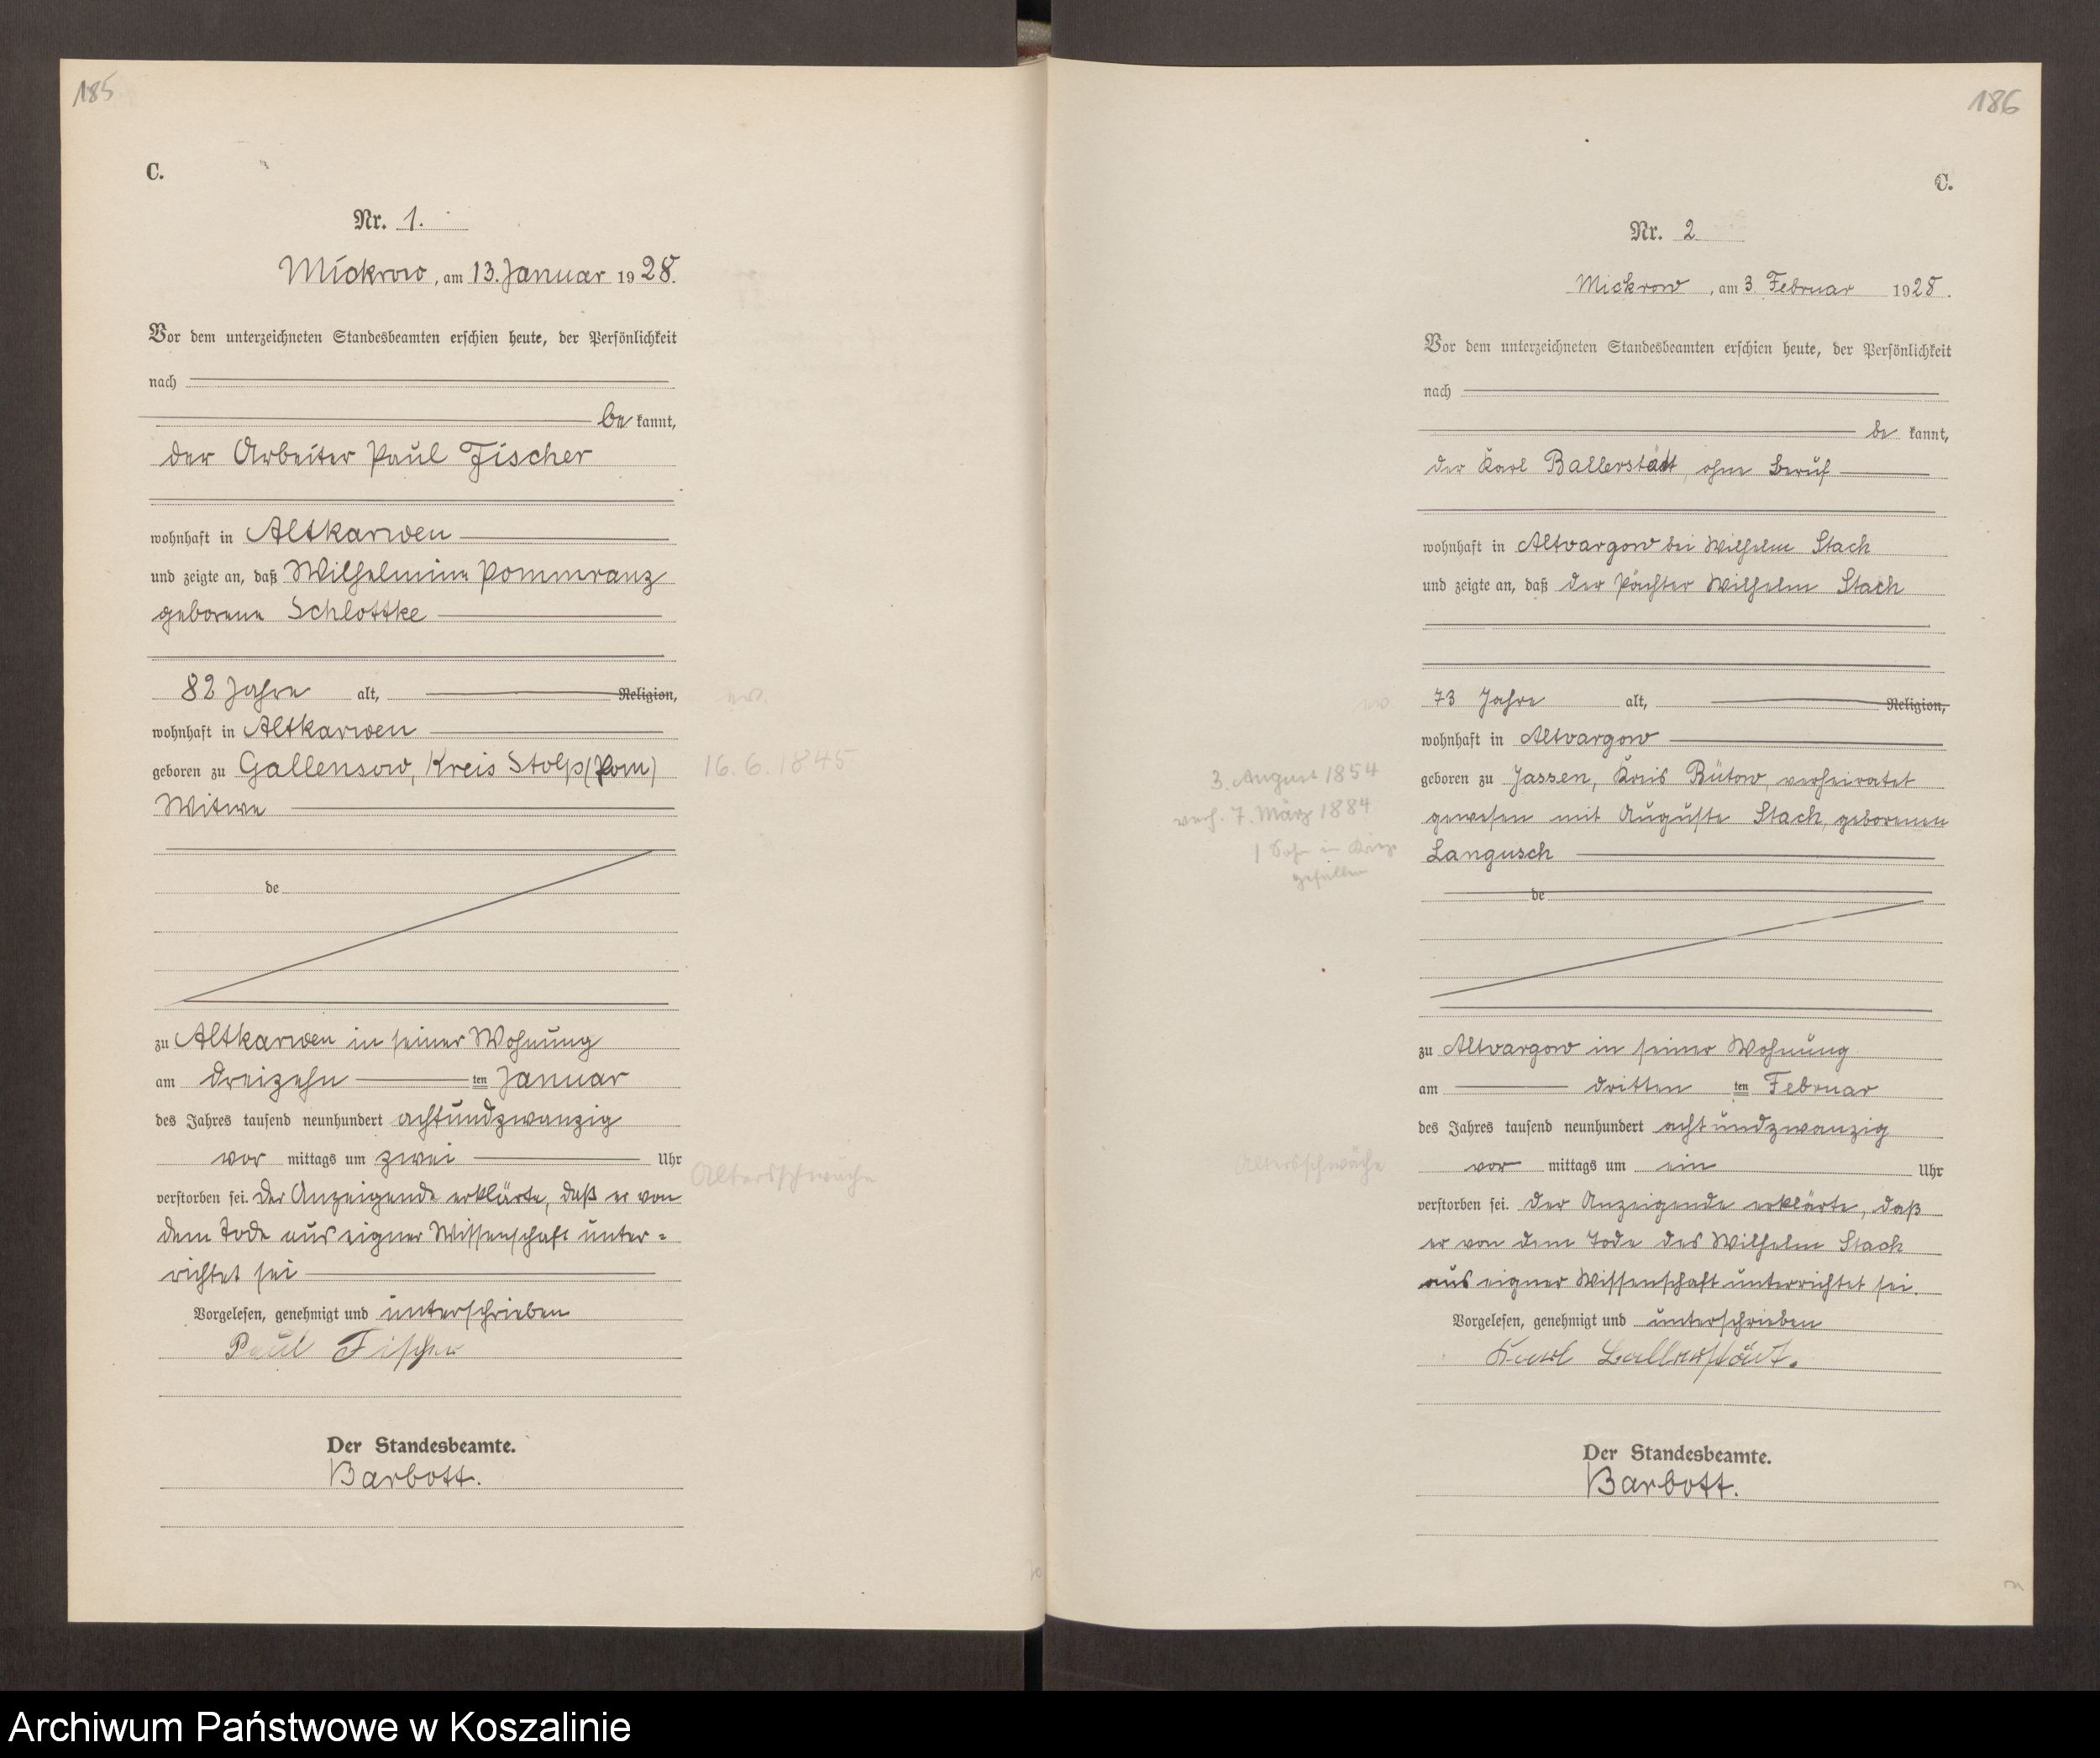 185
C.
Nr. 1.
Mickrow, am 13. Januar 1928.
Vor dem unterzeichneten Standesbeamten erschien heute, der Persönlichkeit
nach
be kannt,
der Arbeiter Paul Fischer
wohnhaft in Altkarwen
und zeigte an, daß Wilhelmine Pommranz
geborene Schlottke
82 Jahre alt, Religion,
ev.
wohnhaft in Altkarwen
geboren zu Gallensow, Kreis Stolp (Pom)
16. 6. 1845
Witwe
de
zu Altkarwen in seiner Wohnung
am dreizehn ten Januar
des Jahres tausend neunhundert achtundzwanzig
vor mittags um zwei Uhr
Altersschwäche
verstorben sei. Der Anzeigende erklärte, daß er von
dem Tode aus eigner Wissenschaft unter-
richtet sei
Vorgelesen, genehmigt und unterschrieben
Paul Fischer
Der Standesbeamte.
Barbott.
186
C.
Nr. 2
Mickrow, am 3. Februar 1928.
Vor dem unterzeichneten Standesbeamten erschien heute, der Persönlichkeit
nach
be kannt,
der Karl Ballerstädt, ohne Beruf
wohnhaft in Altvargow bei Wilhelm Stach
und zeigte an, daß der Pächter Wilhelm Stach
ev
73 Jahre alt, Religion,
wohnhaft in Altvargow
3. August 1854
geboren zu Jassen, Kreis Bütow, verheiratet
verh. 7. März 1884
gewesen mit Auguste Stach, geborenen
1 Sohn im Krieg
Langusch
gefallen
de
zu Altvargow in seiner Wohnung
am dritten ten Februar
des Jahres tausend neunhundert achtundzwanzig
Altersschwäche
vor mittags um ein Uhr
verstorben sei. Der Anzeigende erklärte, daß
er von dem Tode des Wilhelm Stach
aus eigner Wissenschaft unterrichtet sei.
Vorgelesen, genehmigt und unterschrieben
Karl Ballerstädt.
Der Standesbeamte.
Barbott.
Archiwum Państwowe w Koszalinie